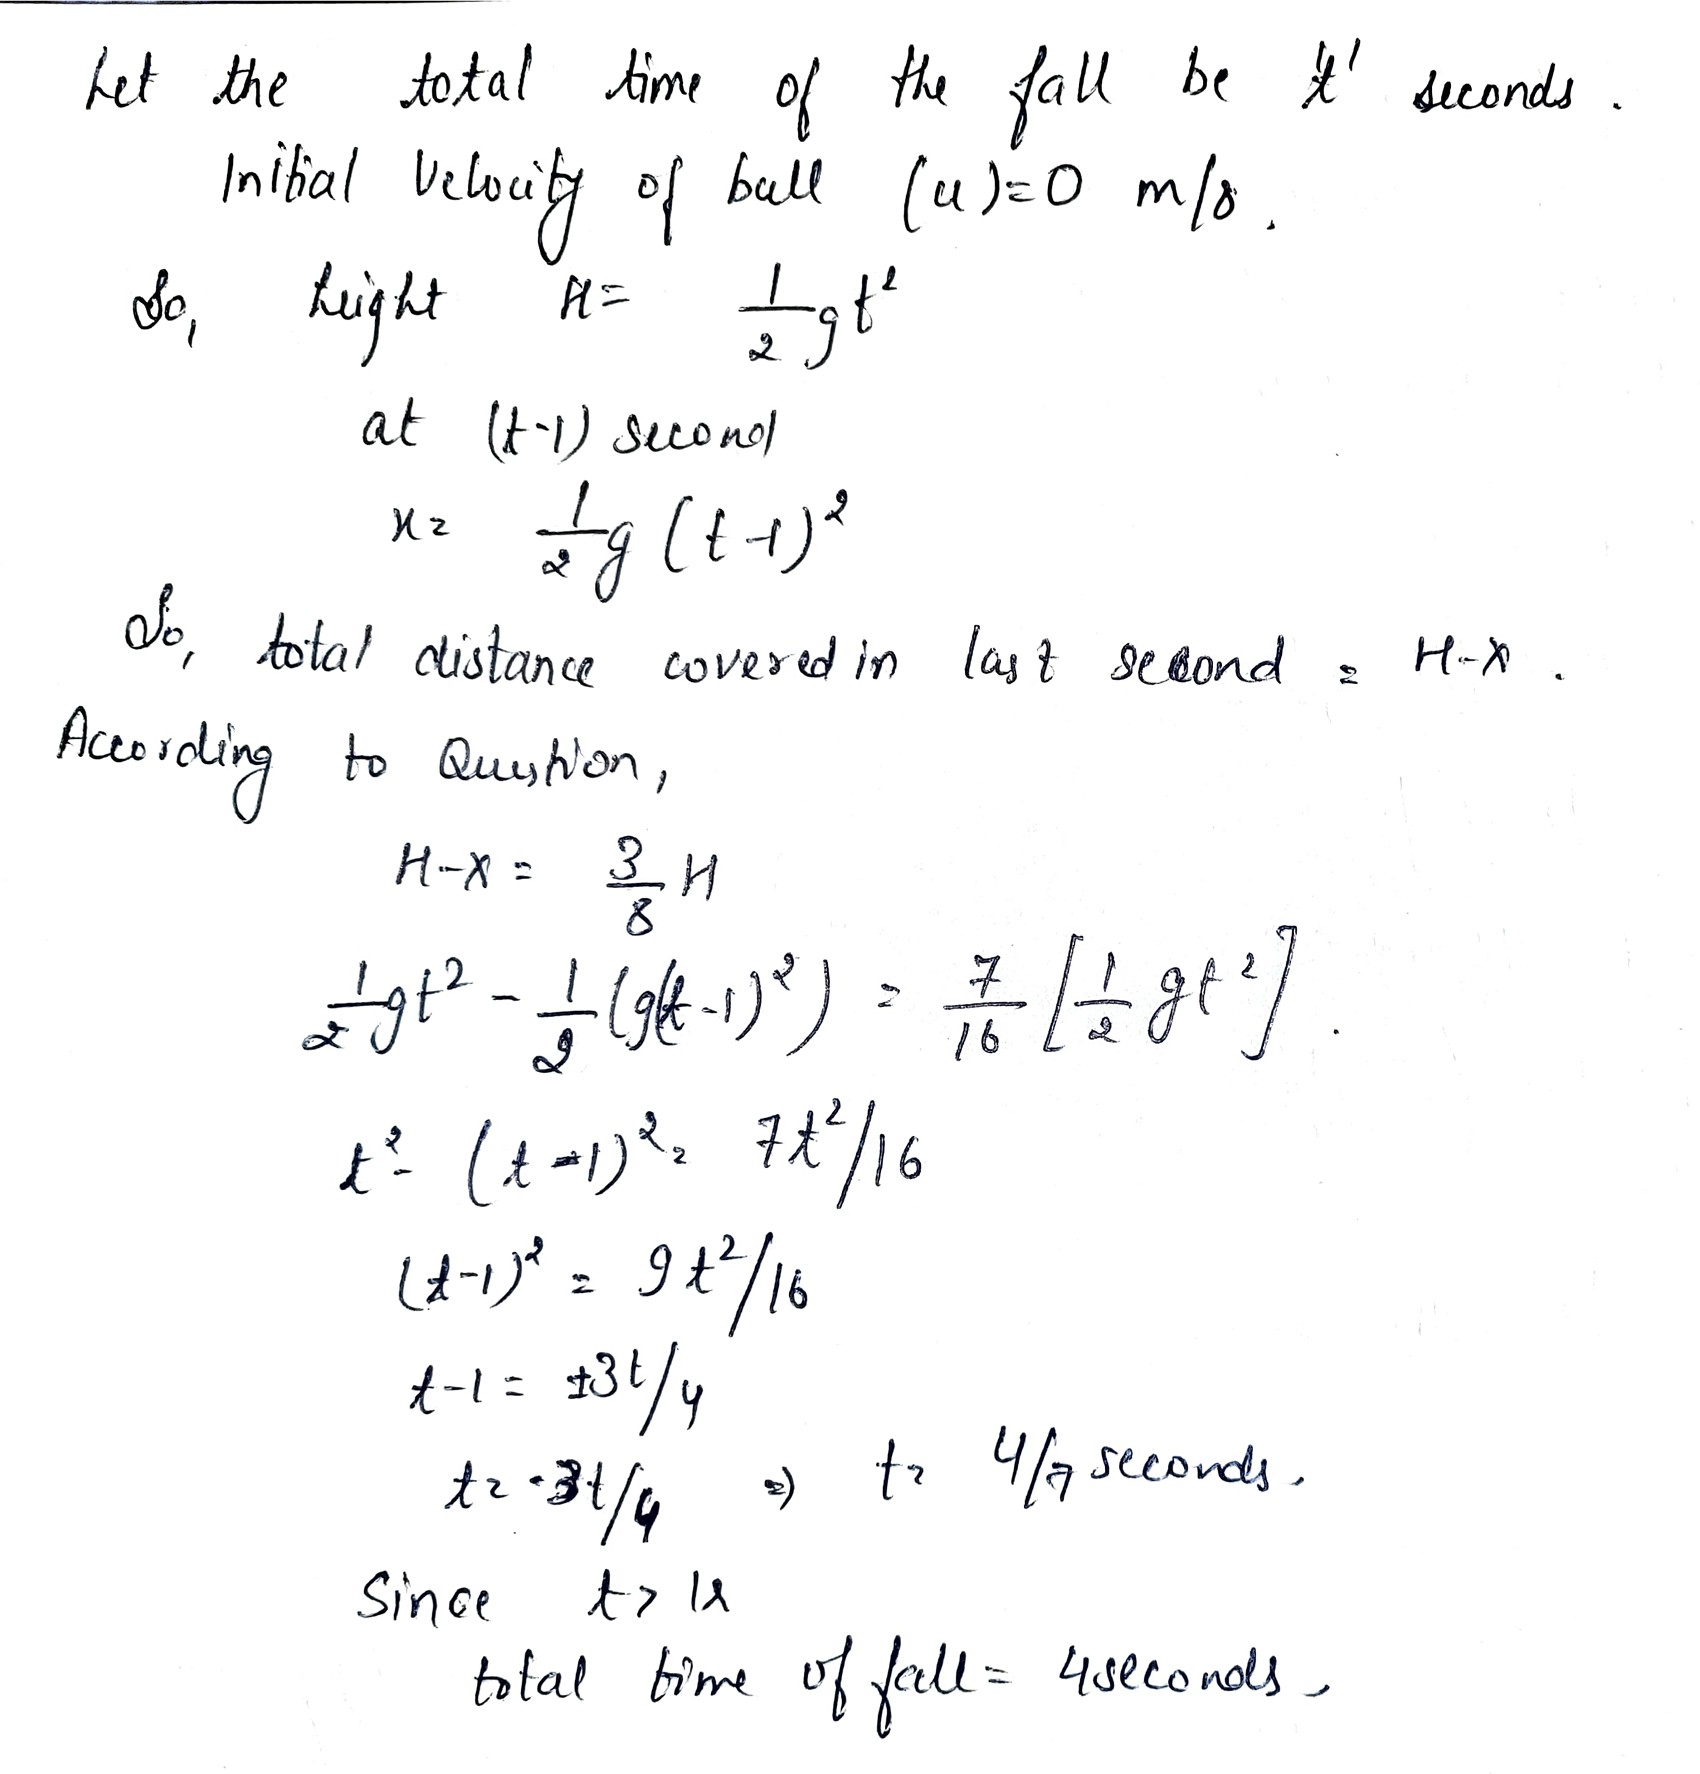 Let the total time of the fall be 't' seconds.
Initial Velocity of ball (u)=0 m/s.
So, height H= 1/2 gt²
at (t-1) second
x= 1/2 g (t-1)²
So, total distance covered in last second = H-x.
According to Question,
H-x = 3/8 H
1/2 gt² - 1/2 (g(t-1)²) = 7/16 [1/2 gt²].
t² - (t-1)² = 7t²/16
(t-1)² = 9t²/16
t-1 = ±3t/4
t = -3t/4 => t= 4/7 seconds.
Since t> 1s
total time of fall = 4seconds,